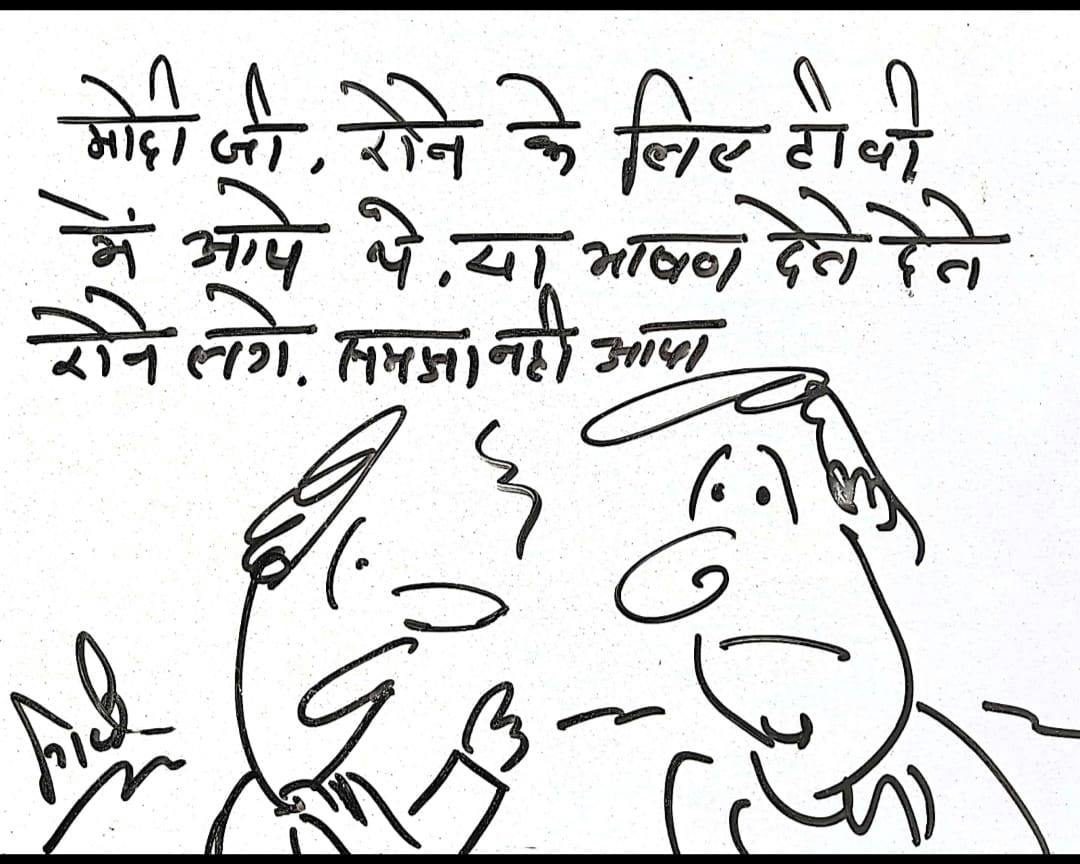 मोदी जी, रोने के लिए टीवी
में आये थे, या भाषण देते देते
रोने लगे. समझा नही आया